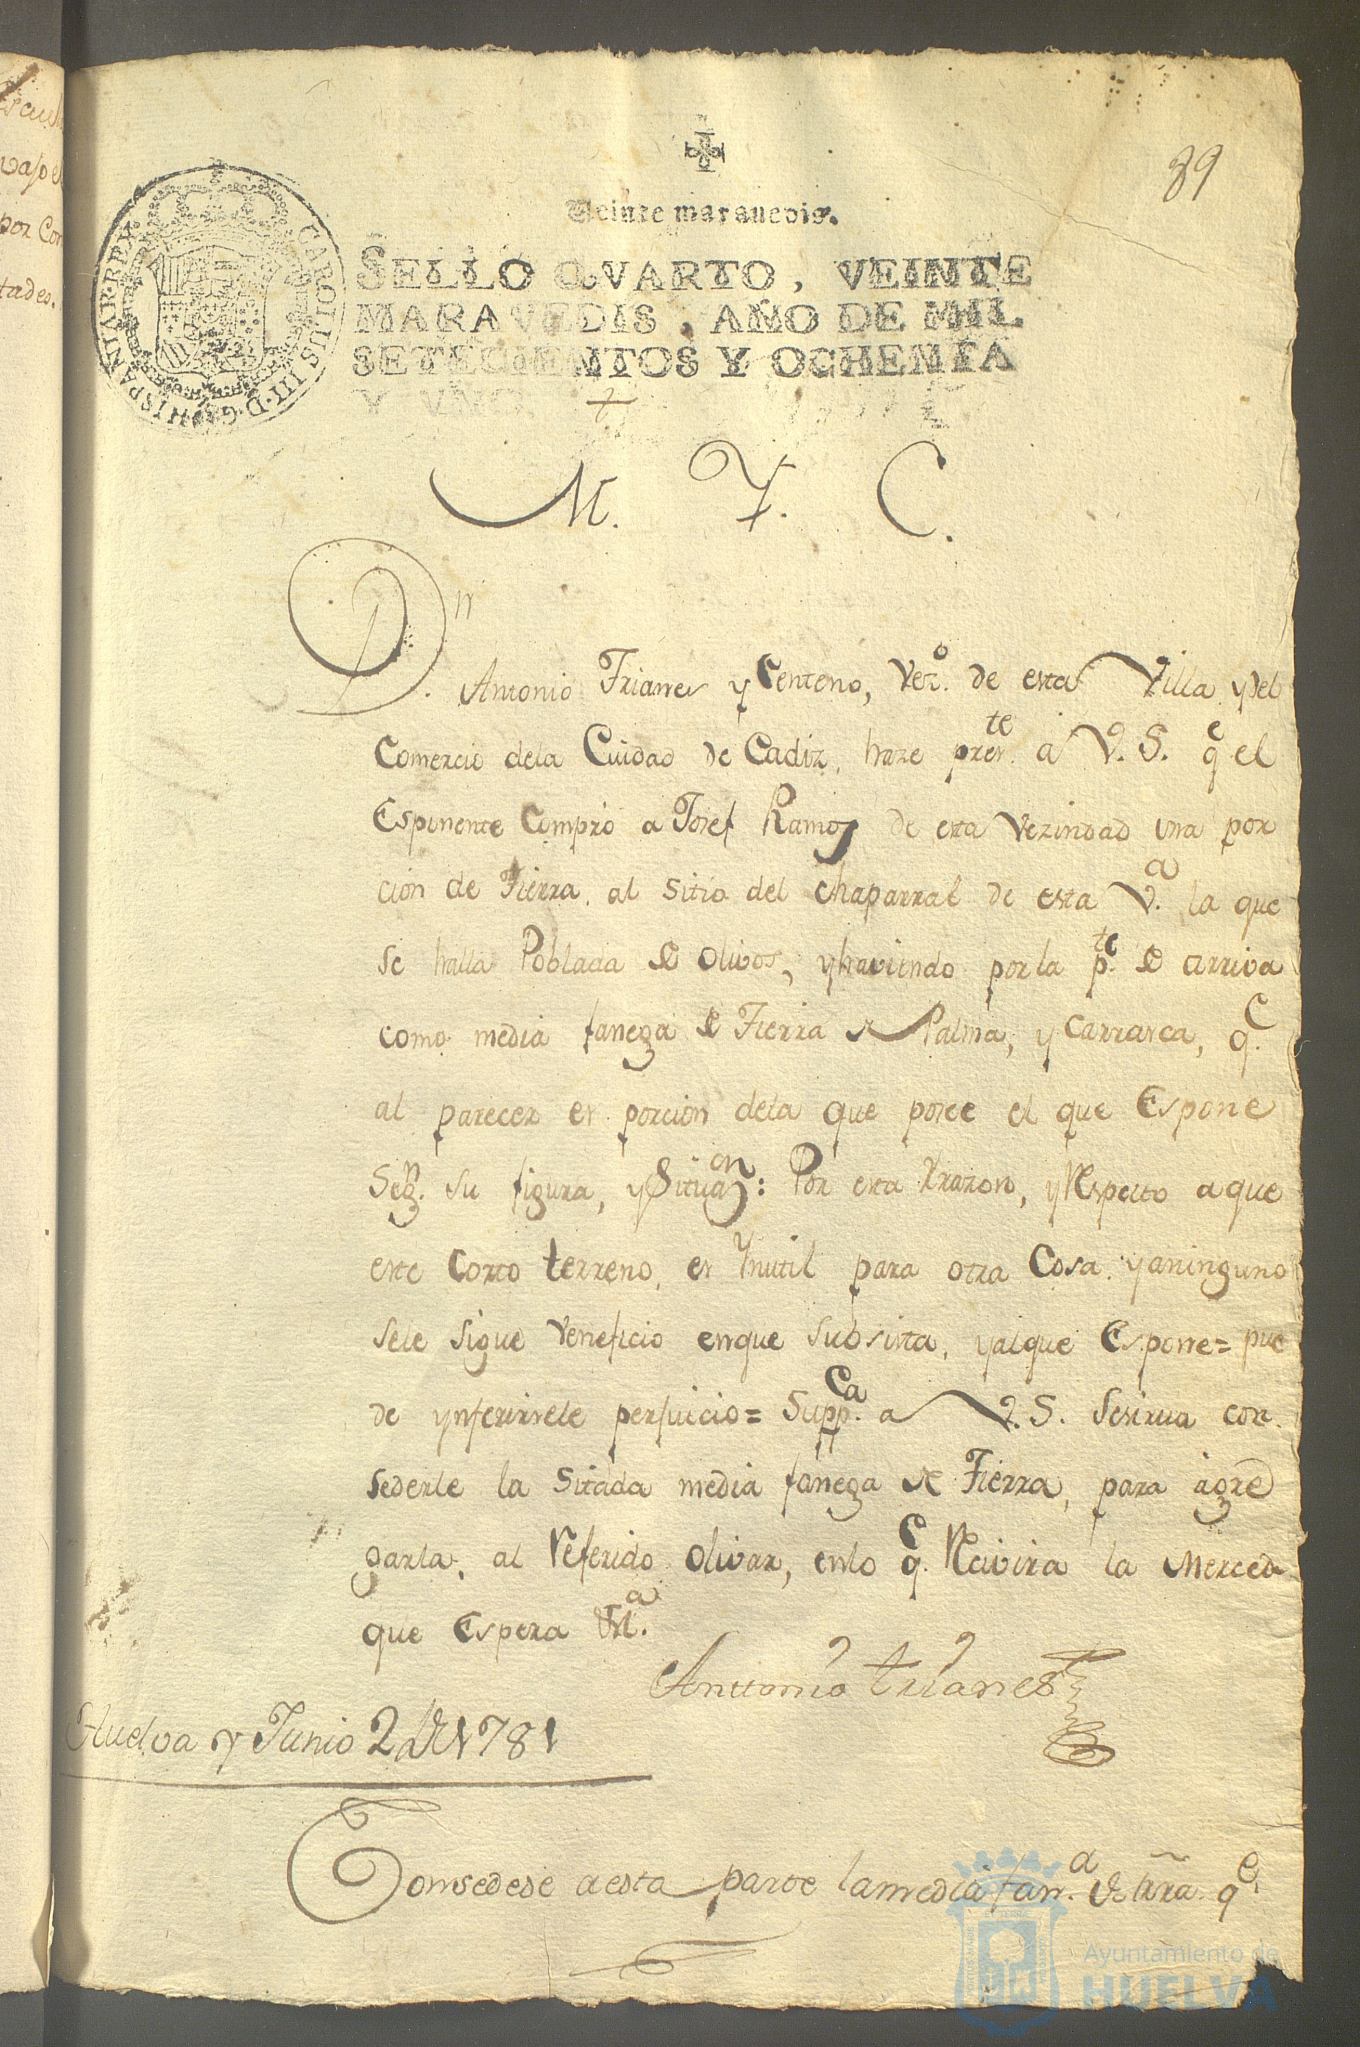 89
Veinte maravedis.
SELLO QVARTO, VEINTE
MARAVEDIS, AÑO DE MIL
SETECIENTOS Y OCHENTA
Y UNO.
CAROLUS III D G HISPANIAR REX
M. Y. C.
Dn. Antonio Trianes y Centeno, Vezo. de esta Villa y del
Comercio dela Cuidad de Cadiz, haze preste. a V. S. qe el
Esponente Compró a Josef Ramos de esta Vezindad una por
cion de Tierra, al sitio del Chaparral de esta Va. la que
se halla Poblada de Olivos, y haviendo por la pte. de arriva
como media fanega de Tierra de Palma, y Carrasca, qe.
al parecer es porcion dela que posee el que Espone
Segn. su figura, y Situan: Por esta Rrazon, y Respecto a que
este Corto terreno, es Ynutil para otra Cosa, y aninguno
sele sigue Veneficio enque subsista, y alque Espone= pue
de ynferirsele perjuicio= Suppca. a V. S. Sesirva con
sederle la Sitada media fanega de Tierra, para agre
garla, al Referido Olivar, enlo qe. Recivira la Merced
que Espera
Anttonio Trianes
Huelva y Junio 2 de 1781
Consedese aesta parte lamedia fana. de trra. qe.
Ayuntamiento de
HUELVA